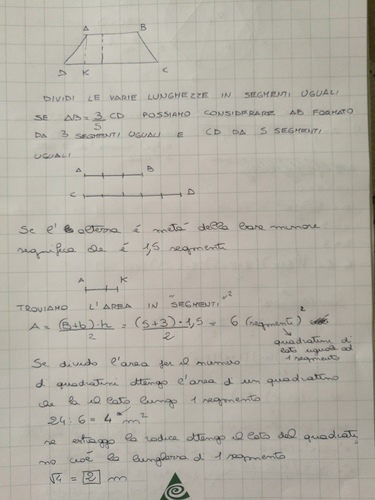 A B
D K C
DIVIDI LE VARIE LUNGHEZZE IN SEGMENTI UGUALI
SE AB = 3/5 CD POSSIAMO CONSIDERARE AB FORMATO
DA 3 SEGMENTI UGUALI E CD DA 5 SEGMENTI
UGUALI
A B
C D
Se l' altezza è metà della base minore
significa che è 1,5 segmenti
A K
TROVIAMO L'AREA IN "SEGMENTI"²
A = (B+b)·h/2 = (5+3)·1,5/2 = 6 (segmento)²
quadratini di
lato uguale ad
1 segmento
Se divido l'area per il numero
di quadratini ottengo l'area di un quadratino
che ha il lato lungo 1 segmento
24 : 6 = 4 m²
se estraggo la radice ottengo il lato del quadrati
no cioè la lunghezza di 1 segmento
√4 = 2 m